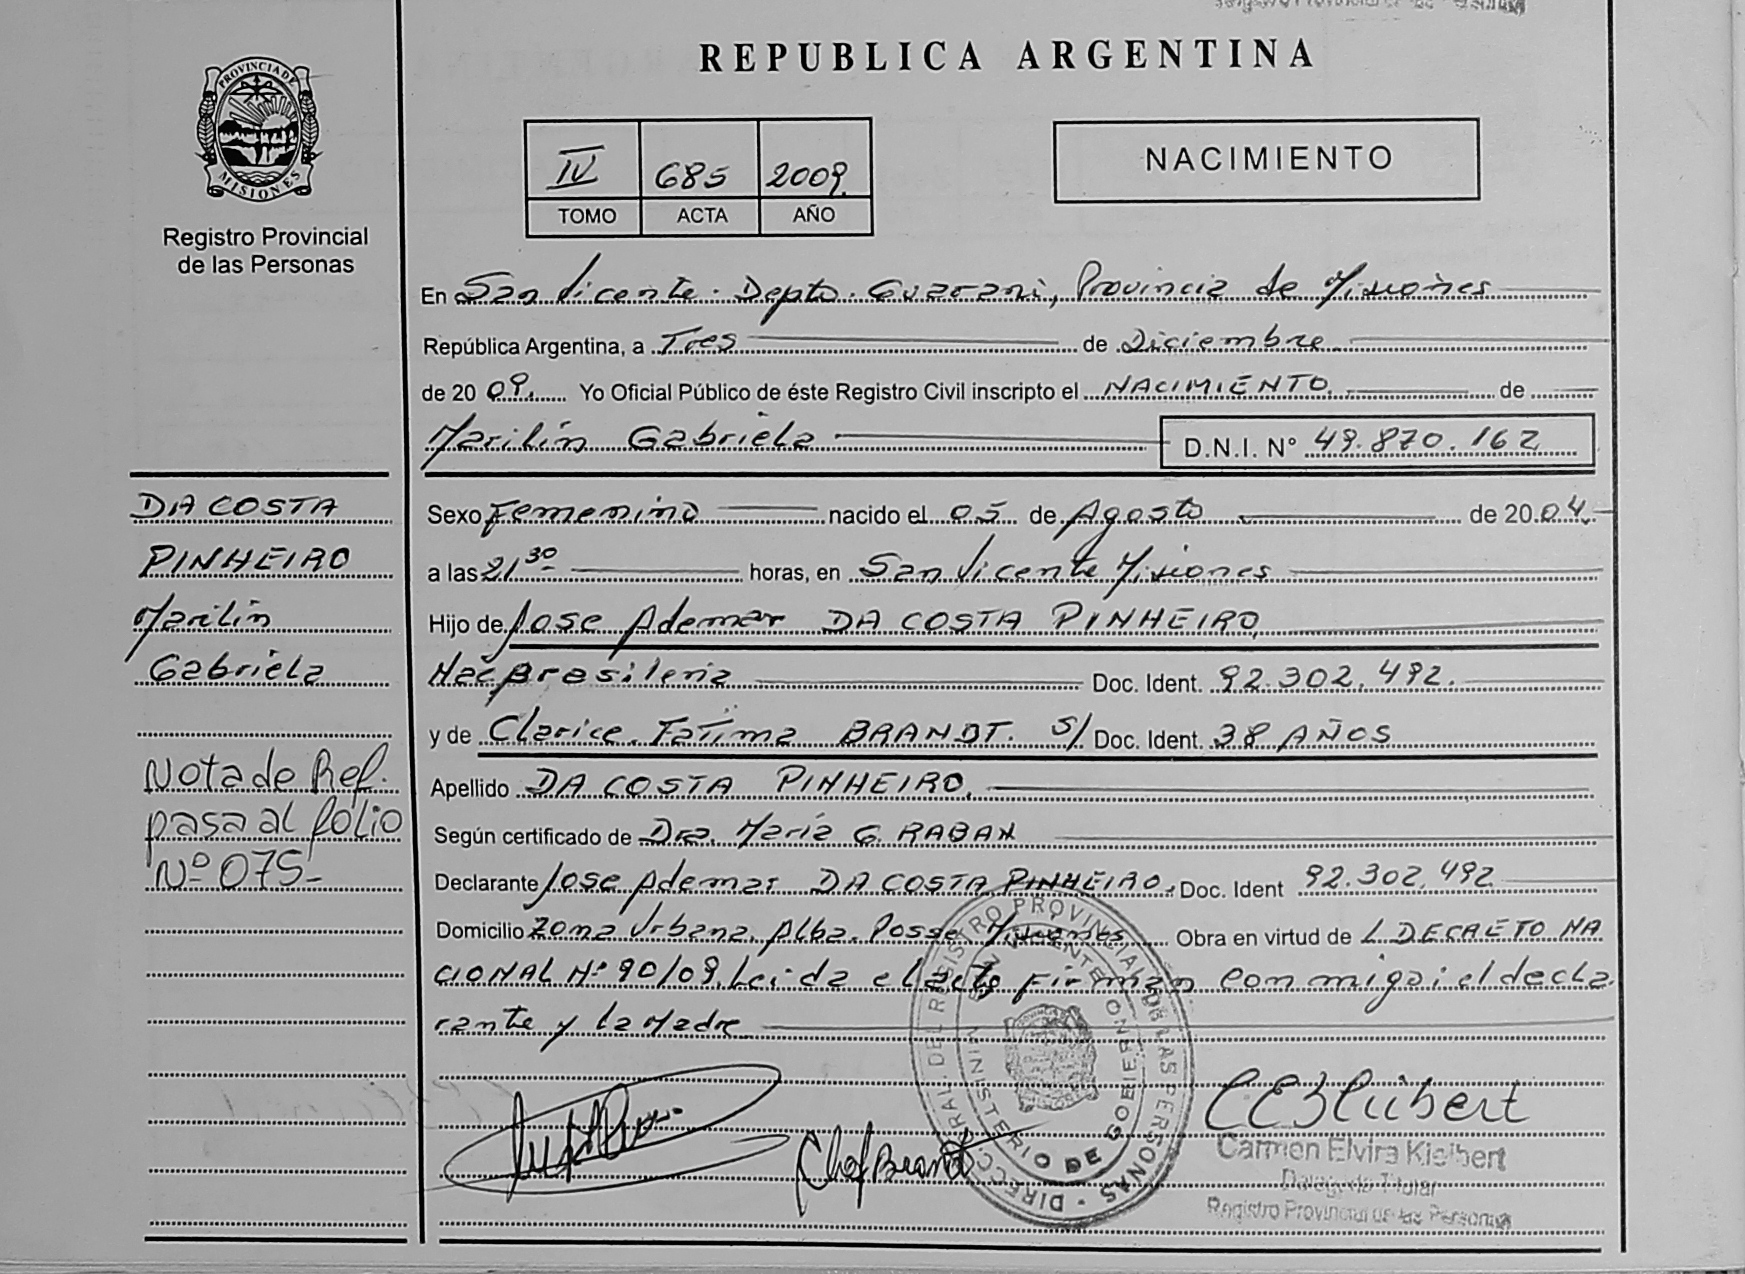 REPUBLICA ARGENTINA
PROVINCIA DE
MISIONES
Registro Provincial
de las Personas
IV 685 2009
TOMO ACTA AÑO
NACIMIENTO
En San Vicente. Depto. Guarani, Provincia de Misiones
República Argentina, a Tres de Diciembre
de 2009. Yo Oficial Público de éste Registro Civil inscripto el NACIMIENTO. de
Marilin Gabriela D.N.I. Nº 49.870.162
DA COSTA
PINHEIRO
Marilin
Gabriela
Nota de Ref.
pasa al folio
Nº 075-
Sexo Femenino nacido el 05 de Agosto de 2004.
a las 21 30 horas, en San Vicente Misiones
Hijo de Jose Ademar DA COSTA PINHEIRO,
Nac Brasileria Doc. Ident. 92.302.492.
y de Clarice Fatima BRANDT. S/ Doc. Ident. 38 AÑOS
Apellido DA COSTA PINHEIRO.
Según certificado de Dra. Maria G. RABAN
Declarante Jose Ademar DA COSTA PINHEIRO. Doc. Ident 92.302.492
Domicilio Zona Urbana. Alba. Posse Misiones Obra en virtud de L DECRETO NA
CIONAL Nº 90/09. Leida el acto Firman con migo; el decla
rante y la Madre
DIRECC GRAL. DEL REGISTRO PROVINCIAL DE LAS PERSONAS
MINISTERIO DE GOBIERNO
SAN VICENTE
Carmen Elvira Kielbert
Delegada Titular
Registro Provincial de las Personas